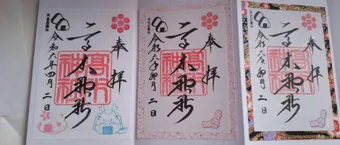 奉拝
高木神社
令和六年四月二日
奉拝
高木神社
令和六年卯月二日
奉拝
高木神社
令和六年卯月二日